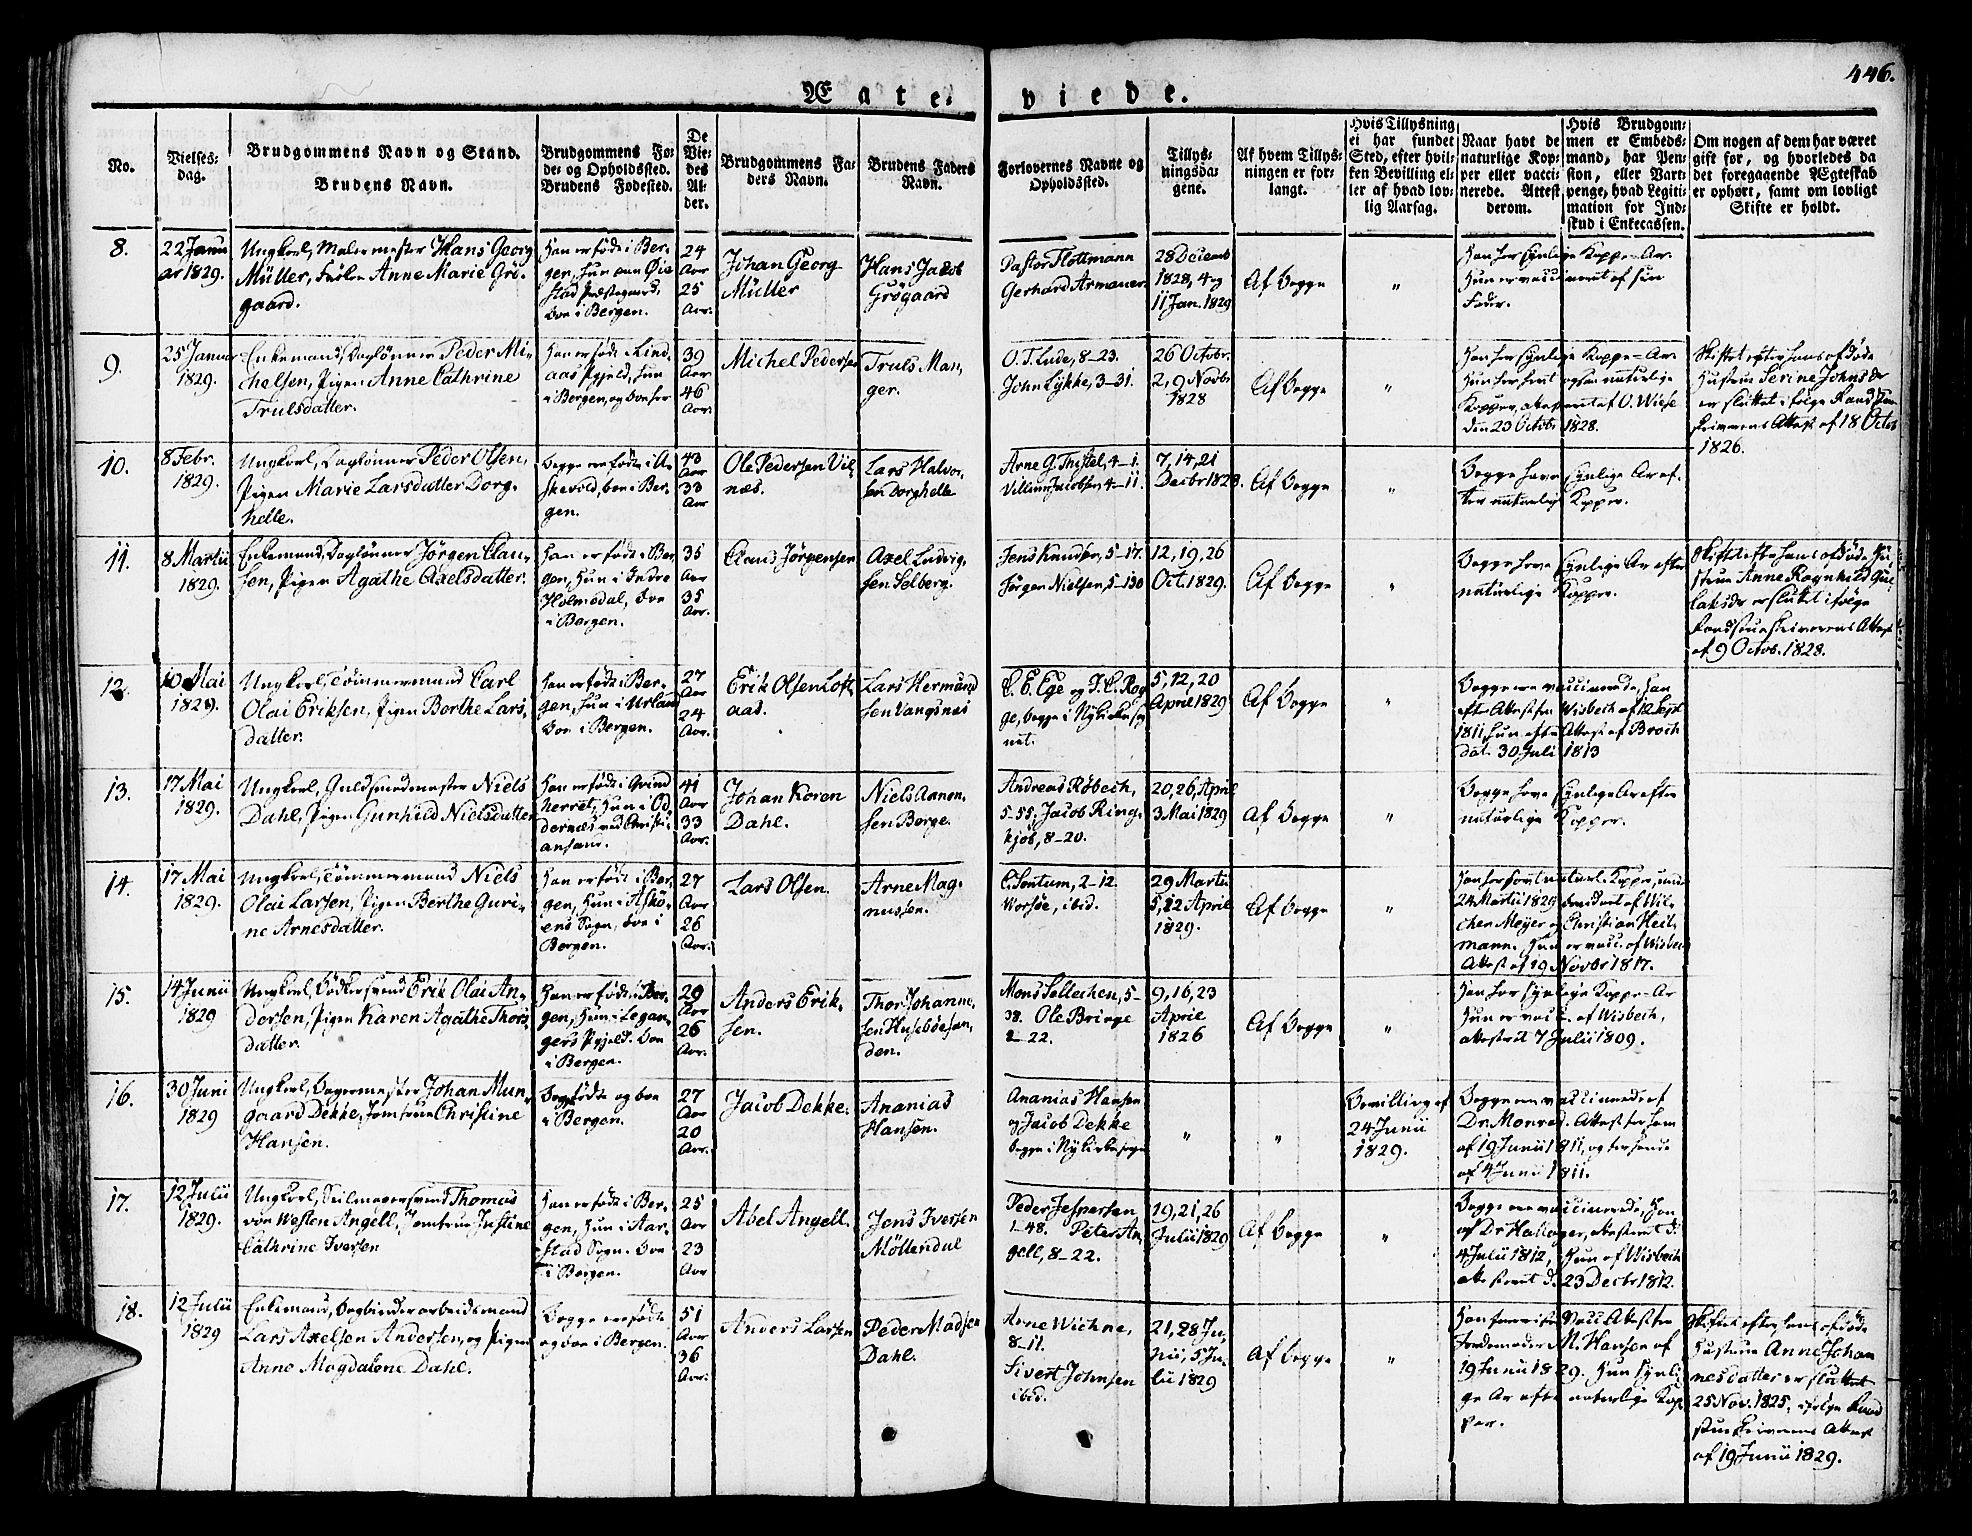 446.
Ægte- viede.
No.
Vielses-
dag.
Brudgommens Navn og Stand.
Brudens Navn.
Brudgommens Fø-
de- og Opholdssted.
Brudens Fødested.
De
Vie-
des
Al-
der.
Brudgommens Fa-
ders Navn.
Brudens Faders
Navn.
Forlovernes Navne og
Opholdssted.
Tillys-
ningsda-
gene.
Af hvem Tillys-
ningen er for-
langt.
Hvis Tillysning
ei har fundet
Sted, efter hvil-
ken Bevilling el-
ler af hvad lov-
lig Aarsag.
Naar havt de
naturlige Kop-
per eller vacci-
nerede. Attest
derom.
Hvis Brudgom-
men er Embeds-
mand, har Pen-
sion, eller Vart-
penge, hvad Legiti-
mation for Ind-
skud i Enkecassen.
Om nogen af dem har været
gift før, og hvorledes da
det foregaaende Ægteskab
er ophørt, samt om lovligt
Skifte er holdt.
8.
22 Janu
ar 1829.
Ungkarl, Malermester Hans Georg
Müller, Frøken Anne Marie Grø-
gaard.
Han er født i Ber-
gen, hun paa Øie
stad Præstegaard,
boe i Bergen.
24
Aar
25
Aar.
Johan Georg
Müller
Hans Jacob
Grøgaard
Pastor Flottmann
Gerhard Armauer
28 Decemb
1828, 4 og
11 Jan. 1829
Af begge
"
Han har synlige Koppe-Ar.
Hun er vaccineret af sin
Fader.
9.
25 Januar
1829.
Enkemand, Daglønner Peder Mi-
chelsen, Pigen Anne Cathrine
Trulsdatter.
Han er født i Lind
aas Pgjeld, hun
i Bergen, og boe her
39
Aar
46
Aar.
Michel Pedersen
Truls Man-
ger.
O. T. Lude, 8-23.
John Lykke, 3-31.
26 Octobr.
2, 9 Novbr
1828
Af begge
"
Han har synlige Koppe-Ar
Hun har havt ogsaa naturlige
Kopper, attesteret af O. Wiese
den 23 Octobr 1828.
Skiftet efter hans afdøde
Hustrue Serine Johnsdr
er sluttet ifølge Raadstue
skriverens Attest af 18 Octob
1826.
10.
8 Febr.
1829.
Ungkarl, Daglønner Peder Olsen,
Pigen Marie Larsdatter Dorg-
helle.
Begge ere fødte i A-
skevold, boe i Ber-
gen.
43
Aar
33
Aar
Ole Pedersen Vil
næs.
Lars Halvor
sen Dorghelle
Arne G. Thistel, 4-1.
Villum Jacobsen, 4-11.
7, 14, 21
Decbr 1828.
Af begge
"
Begge have synlige Ar ef-
ter naturlige Kopper.
11.
8 Martii
1829.
Enkemand, Daglønner Jørgen Clau-
sen, Pigen Agathe Axelsdatter.
Han er født i Ber
gen, hun i Indre
Holmedal, boe
i Bergen.
35
Aar
35
Aar.
Claus Jørgensen
Axel Ludvig-
sen Solberg.
Jens Knudsen, 5-17.
Jørgen Nielsen, 5-130
12, 19, 26
Oct. 1829.
Af begge
"
Begge have synlige Ar efter
naturlige Kopper.
Skiftet efter hans afdøde Hu-
strue Anne Ragnhild Gul
laksdr er sluttet ifølge
Raadstueskriverens Attest
af 9 Octob. 1828.
12.
10 Mai
1829.
Ungkarl, Tømmermand Carl
Olai Eriksen, Pigen Berthe Lars-
datter.
Han er født i Ber-
gen, hun i Urland
boe i Bergen.
27
Aar
24
Aar.
Erik Olsen Loft
aas.
Lars Hermund
sen Vangsnæs
C. E. Ege og J. C. Rog
ge, begge i Nykirkesog
net.
5, 12, 20
April 1829
Af begge
"
Begge ere vaccinerede, han
efter Attest fra Wisbech af 12 Sept
1811, hun efter Attest af Broch
dat. 30 Juli 1813
13.
17 Mai
1829.
Ungkarl, Guldsmedmester Niels
Dahl, Pigen Gunhild Nielsdatter
Han er født i Qvind
herret, hun i Od
dernæs ved Christi-
ansand.
41
Aar
33
Aar.
Johan Koren
Dahl.
Niels Aanen-
sen Berge.
Andreas Røbech,
5-55, Jacob Ring-
kjøb, 8-20.
20, 26, April
3 Mai 1829
Af begge
"
Begge have synlige Ar efter
naturlige Kopper.
14.
17 Mai
1829.
Ungkarl, Tømmermand Niels
Olai Larsen, Pigen Berthe Guri-
ne Arnesdatter.
Han er født i Ber-
gen, hun i Askø-
ens Sogn, boe i
Bergen.
27
Aar
26
Aar.
Lars Olsen.
Arne Mag-
nussen.
C. Sontum, 2-12.
Worsøe, ibid.
29 Martii
5, 12 April
1829.
Af begge
"
Han har havt naturl. Kopper, under
24 Martii 1829 bevidnet af Wil-
chen Meyer og Christian Heil-
mann. Hun er vacc. af Wisbech
Attest af 19 Novbr 1817.
15.
14 Junii
1829
Ungkarl, Bødkersvend Erik Olai An-
dersen, Pigen Karen Agathe Thors-
datter.
Han er født i Ber-
gen, hun i Legan-
gers Pgjeld. boe
i Bergen.
20
Aar
26
Aar.
Anders Erik-
sen.
Thor Johanne-
sen Husebøesan-
den.
Mons Sellechen, 5-
38. Ole Bringe
2-22.
9, 16, 23
April
1826
Af begge
"
Han har synlige Koppe-Ar
Hun er vacc. af Wisbech,
attesteret 7 Julii 1809.
16.
30 Juni
1829
Ungkarl, Bagermester Johan Mun-
gaard Dekke, Jomfrue Christine
Hansen.
Begge fødte og boe
i Bergen.
27
Aar
20
Aar.
Jacob Dekke.
Ananias
Hansen.
Ananias Hansen
og Jacob Dekke
begge i Nykirkesogn
"
"
Bevilling af
24 Junii
1829.
Begge ere vaccinerede af
Dr. Monrad. Attest for ham
af 19 Junii 1811, og for hende
af 4 Juni 1811.
17.
12 Julii
1829.
Ungkarl, Seilmagersvend Thomas
von Westen Angell, Jomfrue Justine
Cathrine Iversen
Han er født i Ber-
gen, hun i Aar-
stad Sogn. boe
i Bergen.
25
Aar
23
Aar
Abel Angell.
Jens Iversen
Møllendal
Peder Jespersen
1-48. Peter An-
gell, 8-22.
19, 21, 26
Julii 1829
Af begge
"
Begge ere vaccinerede, han
af Dr Heitager, attesteret d.
4 Julii 1812, hun af Wisbech
attesteret d. 23 Decbr 1812.
18.
12 Julii
1829
Enkemand, Bogbinderarbeidsmand
Lars Axelsen Andersen, og Pigen
Anne Magdalene Dahl.
Begge ere fødte
og boe i Bergen.
51
Aar
36
Aar.
Anders Larsen
Peder Madsen
Dahl.
Arne Wichne,
8-11.
Sivert Johnsen
ibid.
21, 28 Ju-
nii, 5 Ju-
lii 1829
Af begge
"
Han foreviser Vacc. Attest fra
Jordemoder M. Hansen af
19 Junii 1829. Hun synli-
ge Ar efter naturlige Kop-
per.
Skiftet efter hans afdøde
Hustrue Anne Johan
nesdatter er sluttet
25 Nov. 1825, ifølge Raad
stueskriverens Attest
af 19 Junii 1829.